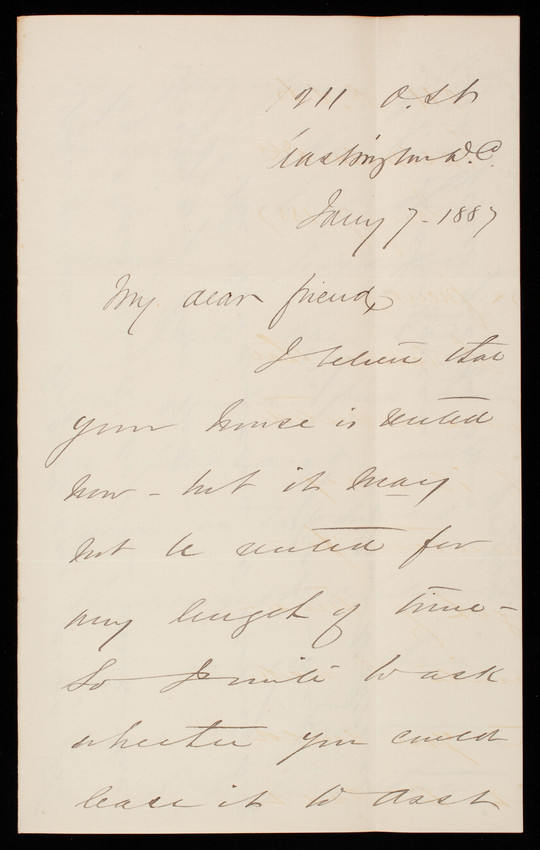 911 O. St.
Washington D.C.
Jany 7 - 1887
My dear friend,
I believe that
your house is rented
now - but it may
not be rented for
any length of time -
So I write to ask
whether you could
lease it to Asst